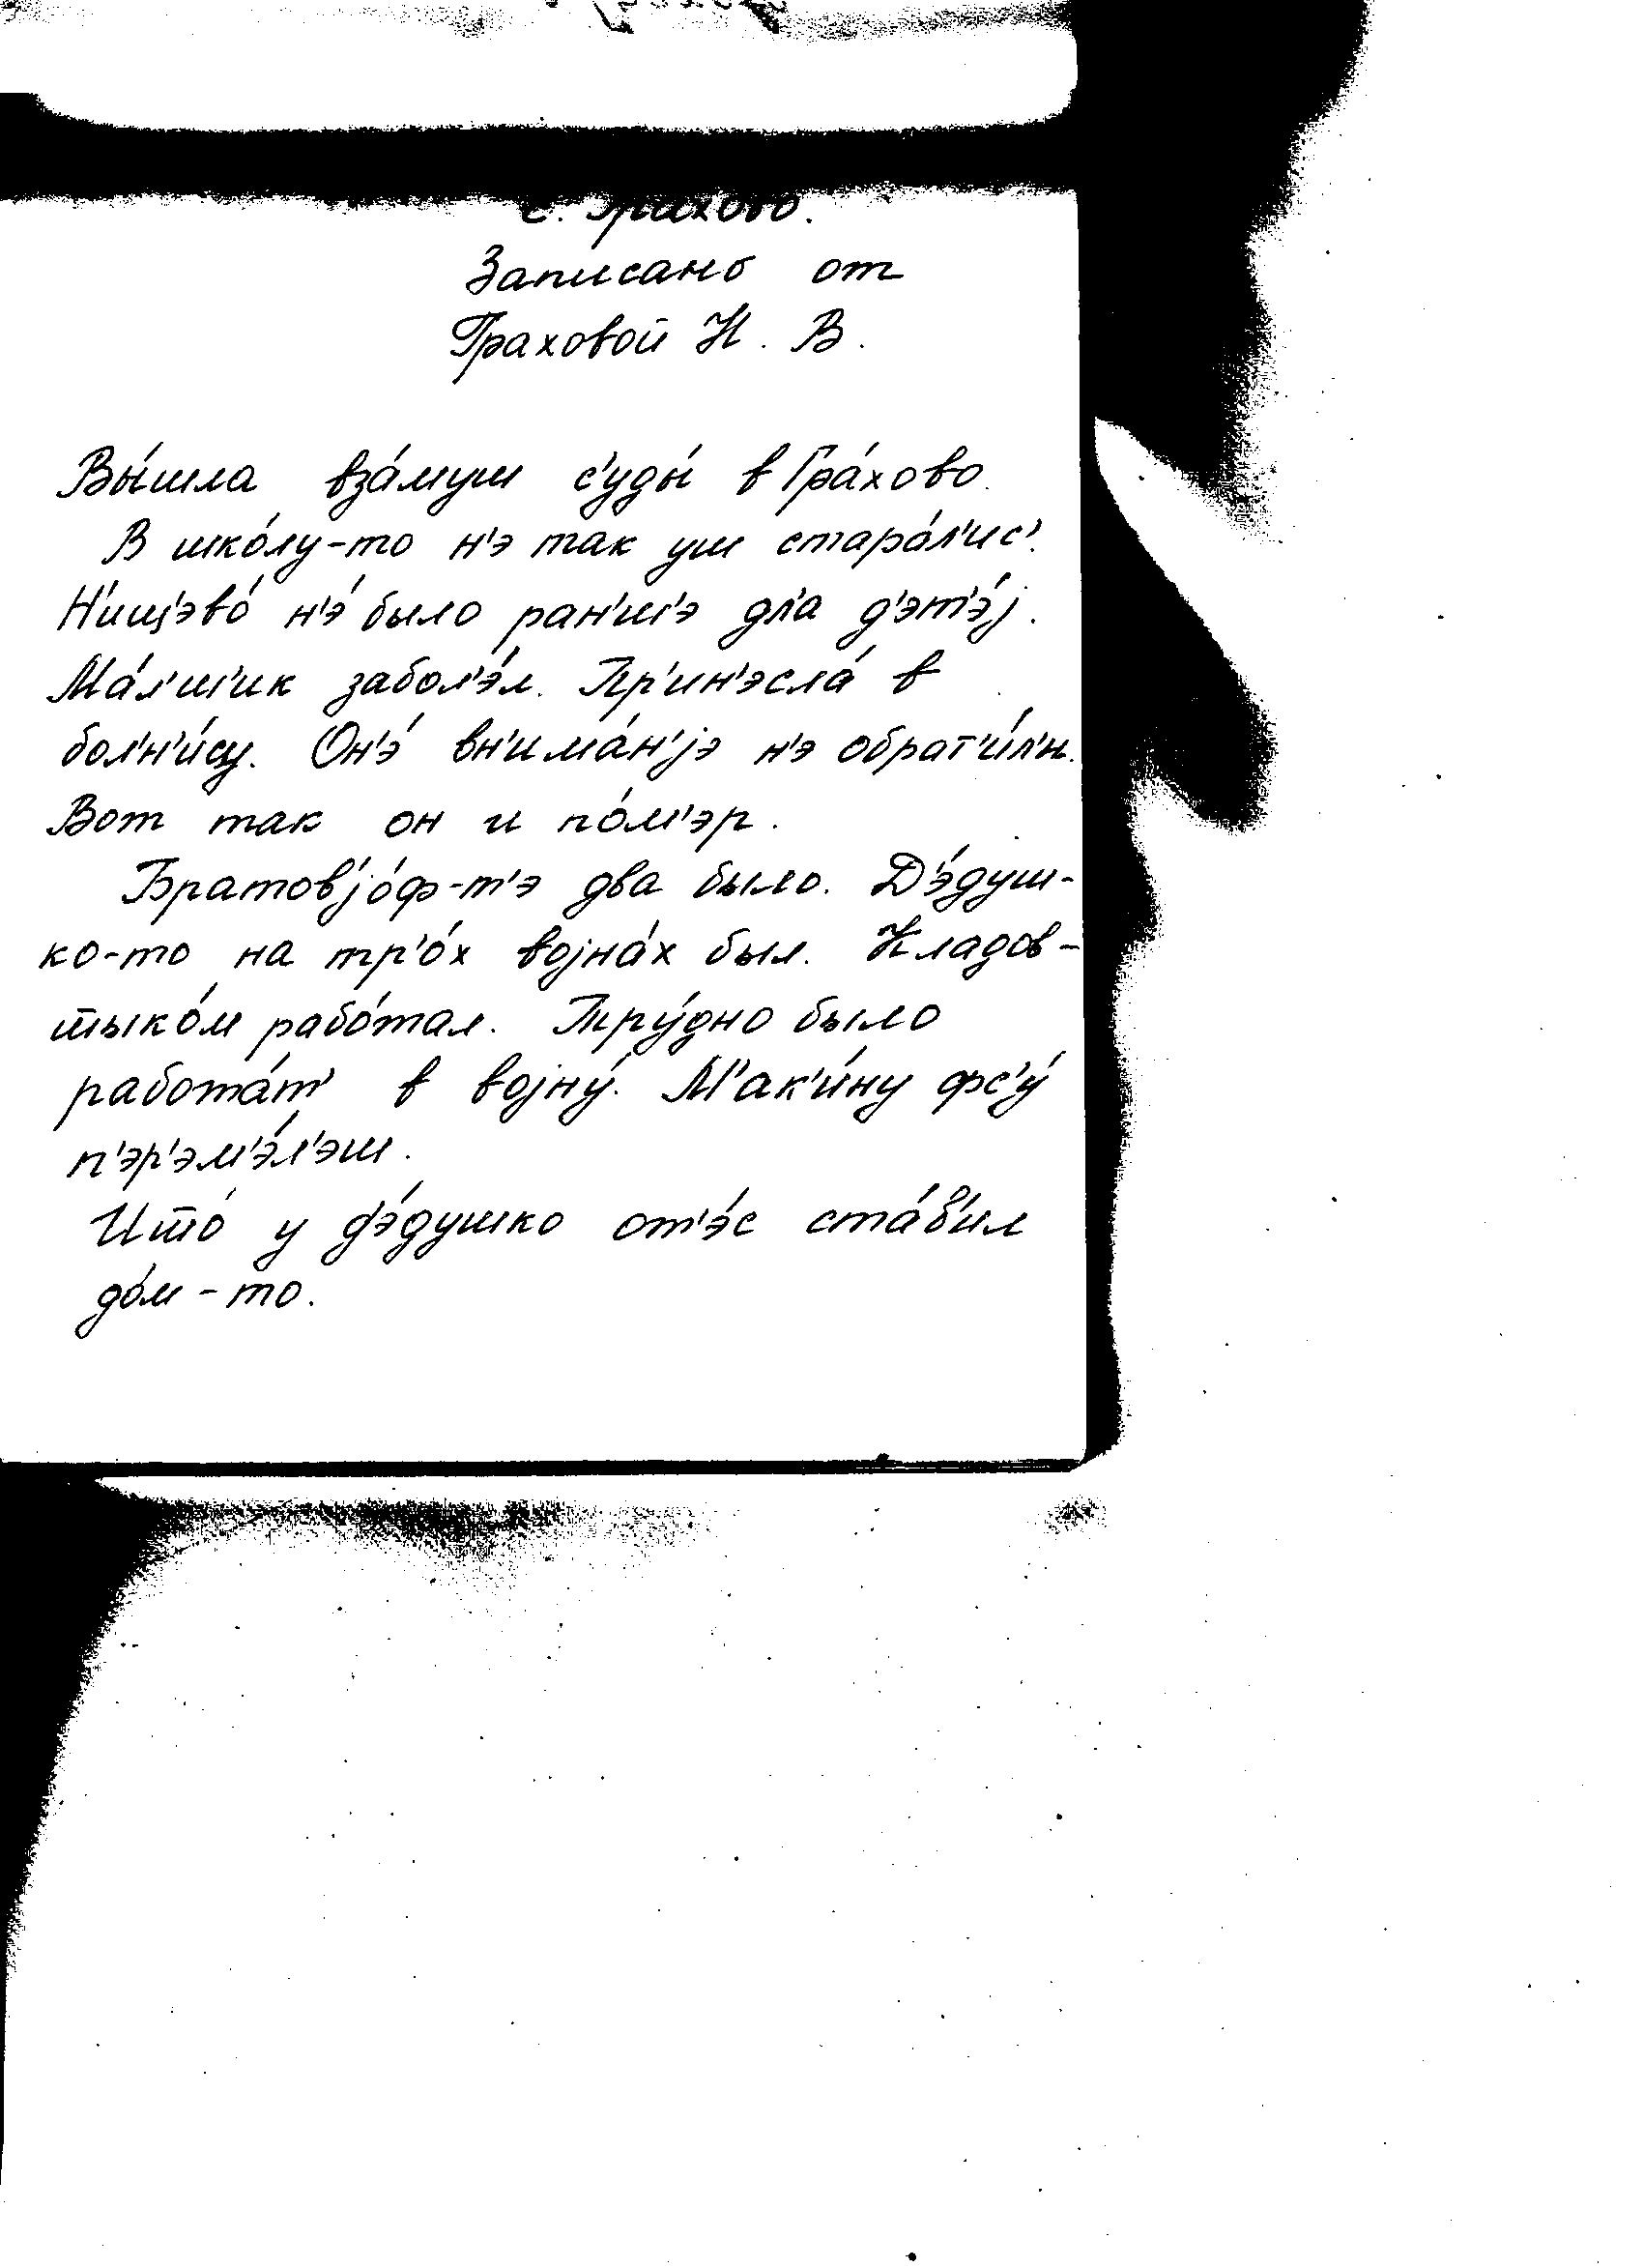 с. Грахово.
Записано от
Граховой Н. В.
Вы́шла вза́муш с'уды́ в Гра́хово.
В шко́лу-то н'э так уш стара́л'ис'.
Н'ищ'эво́ н'э́ было ран'ш'э дл'а д'эт'э́j.
Ма́л'ш'ик забол'э́л. Пр'ин'эсла́ в
бол'н'и́су. Он'э́ вн'има́н'jэ н'э обрат'и́л'и.
Вот так он и по́м'эр.
Братов'jо́ф-т'э два было. Д'э́душ-
ко-то на тр'о́х воjна́х был. Кладов-
шыко́м рабо́тал. Тру́дно было
работа́т' в воjну́. М'ак'и́ну фс'у́
п'эр'эм'э́л'эш.
Што́ у д'э́душко от'э́с ста́в'ил
до́м-то.